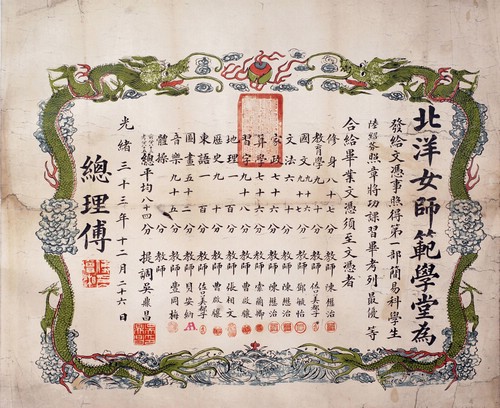 北洋女師範學堂為
發給文憑事照得第一部簡易科學生
陸紹芬照章將功課習畢考列最優等
合給畢業文憑須至文憑者
修身八十七分 教師 陳想治
教育學九十分 教師
國文九十分 教師 鄧毓怙
文法六十分 教師 陳想治
家政七十六分 教師 陳想治
算學七十六分 教師
習字九十八分 教師 曹政驤
地理一百分 教師 張相文
歷史九十分 教師 曹政驤
東語一百分 教師
圖畫五十二分 教師 貝安納
音樂九十五分 教師 豊岡梅
體操
總平均八十四分 提調 吳鼎昌
光緒三十三年十二月二十六日
總理傅